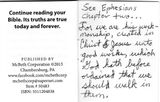 Continue your reading the
Bible. Its truths are true
today and forever.
PUBLISHED BY
McBeth Corporation ©2015
Chambersburg, PA
www.facebook.com/mcbethcorp
mcbethcorp@comcast.net
Item # 50483
See Ephesians
chapter two...
For we are his work-
manship, created in
Christ Jesus unto
good works, which
God hath before
ordained that we
should walk in
them.